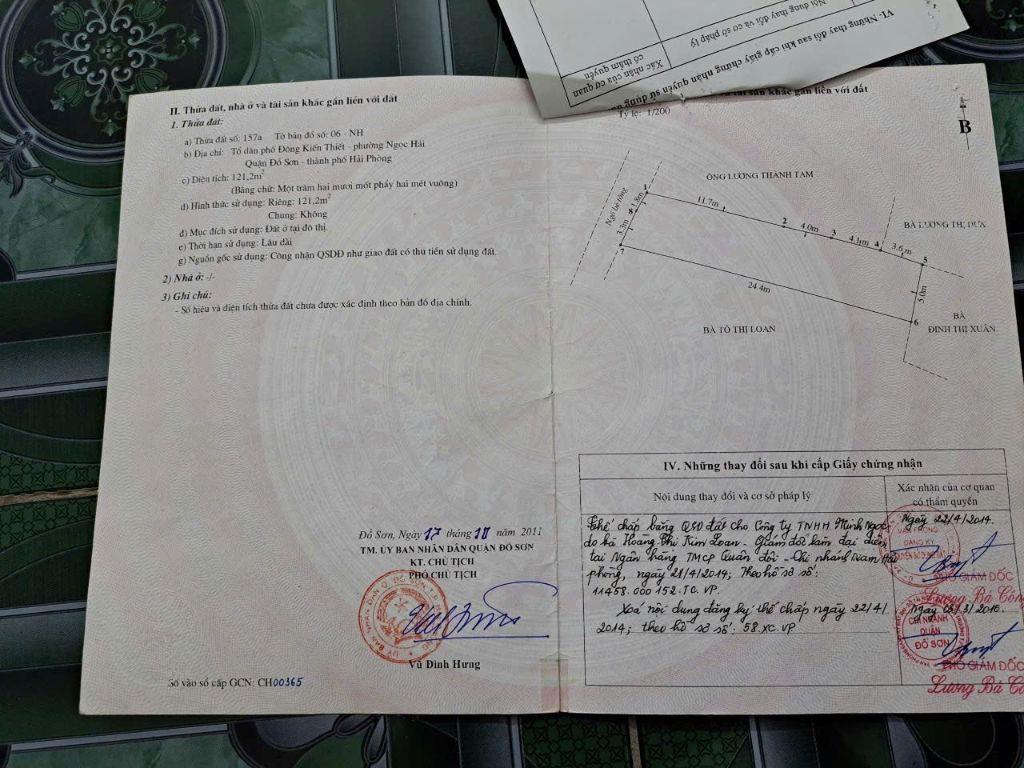 II. Thửa đất, nhà ở và tài sản khác gắn liền với đất
1. Thửa đất:
a) Thửa đất số: 157a Tờ bản đồ số: 06 - NH
b) Địa chỉ: Tổ dân phố Đông Kiến Thiết - phường Ngọc Hải
Quận Đồ Sơn - thành phố Hải Phòng
c) Diện tích: 121,2m²
(Bằng chữ: Một trăm hai mươi mốt phẩy hai mét vuông)
d) Hình thức sử dụng: Riêng: 121,2m²
Chung: Không
đ) Mục đích sử dụng: Đất ở tại đô thị.
e) Thời hạn sử dụng: Lâu dài
g) Nguồn gốc sử dụng: Công nhận QSDĐ như giao đất có thu tiền sử dụng đất.
2) Nhà ở: -/-
3) Ghi chú:
- Số hiệu và diện tích thửa đất chưa được xác định theo bản đồ địa chính.
Đồ Sơn, Ngày 17 tháng 10 năm 2011
TM. ỦY BAN NHÂN DÂN QUẬN ĐỒ SƠN
KT. CHỦ TỊCH
PHÓ CHỦ TỊCH
Vũ Đình Hưng
Số vào sổ cấp GCN: CH00365
VI. Những thay đổi sau khi cấp giấy chứng nhận quyền sử dụng
Nội dung thay đổi và cơ sở pháp lý
Xác nhận của cơ quan
có thẩm quyền
tài sản khác gắn liền với đất
Tỷ lệ: 1/200
B
ÔNG LƯƠNG THÀNH TAM
Ngõ bê tông
1
1.8m
8
3.3m
7
11.7m
2
4.0m
3
4.1m
4
3.6m
5
BÀ LƯƠNG THỊ DƯA
24.4m
5.0m
6
BÀ
ĐINH THỊ XUÂN
BÀ TÔ THỊ LOAN
IV. Những thay đổi sau khi cấp Giấy chứng nhận
Nội dung thay đổi và cơ sở pháp lý
Xác nhận của cơ quan
có thẩm quyền
Thế chấp bằng QSD đất cho Công ty TNHH Minh Ngọc
do bà Hoàng Thị Kim Loan - Giám đốc làm đại diện
tại Ngân hàng TMCP Quân đội - Chi nhánh Nam Hải
phòng, ngày 21/4/2014; Theo hồ sơ số:
11458.000 152.TC.VP.
Ngày 22/4/2014.
PHÓ GIÁM ĐỐC
Lương Bá Côn
Xoá nội dung đăng ký thế chấp ngày 22/4/
2014; theo hồ sơ số: 58.XC.VP
CHI NHÁNH
QUẬN
ĐỒ SƠN
PHÓ GIÁM ĐỐC
Lương Bá Cô